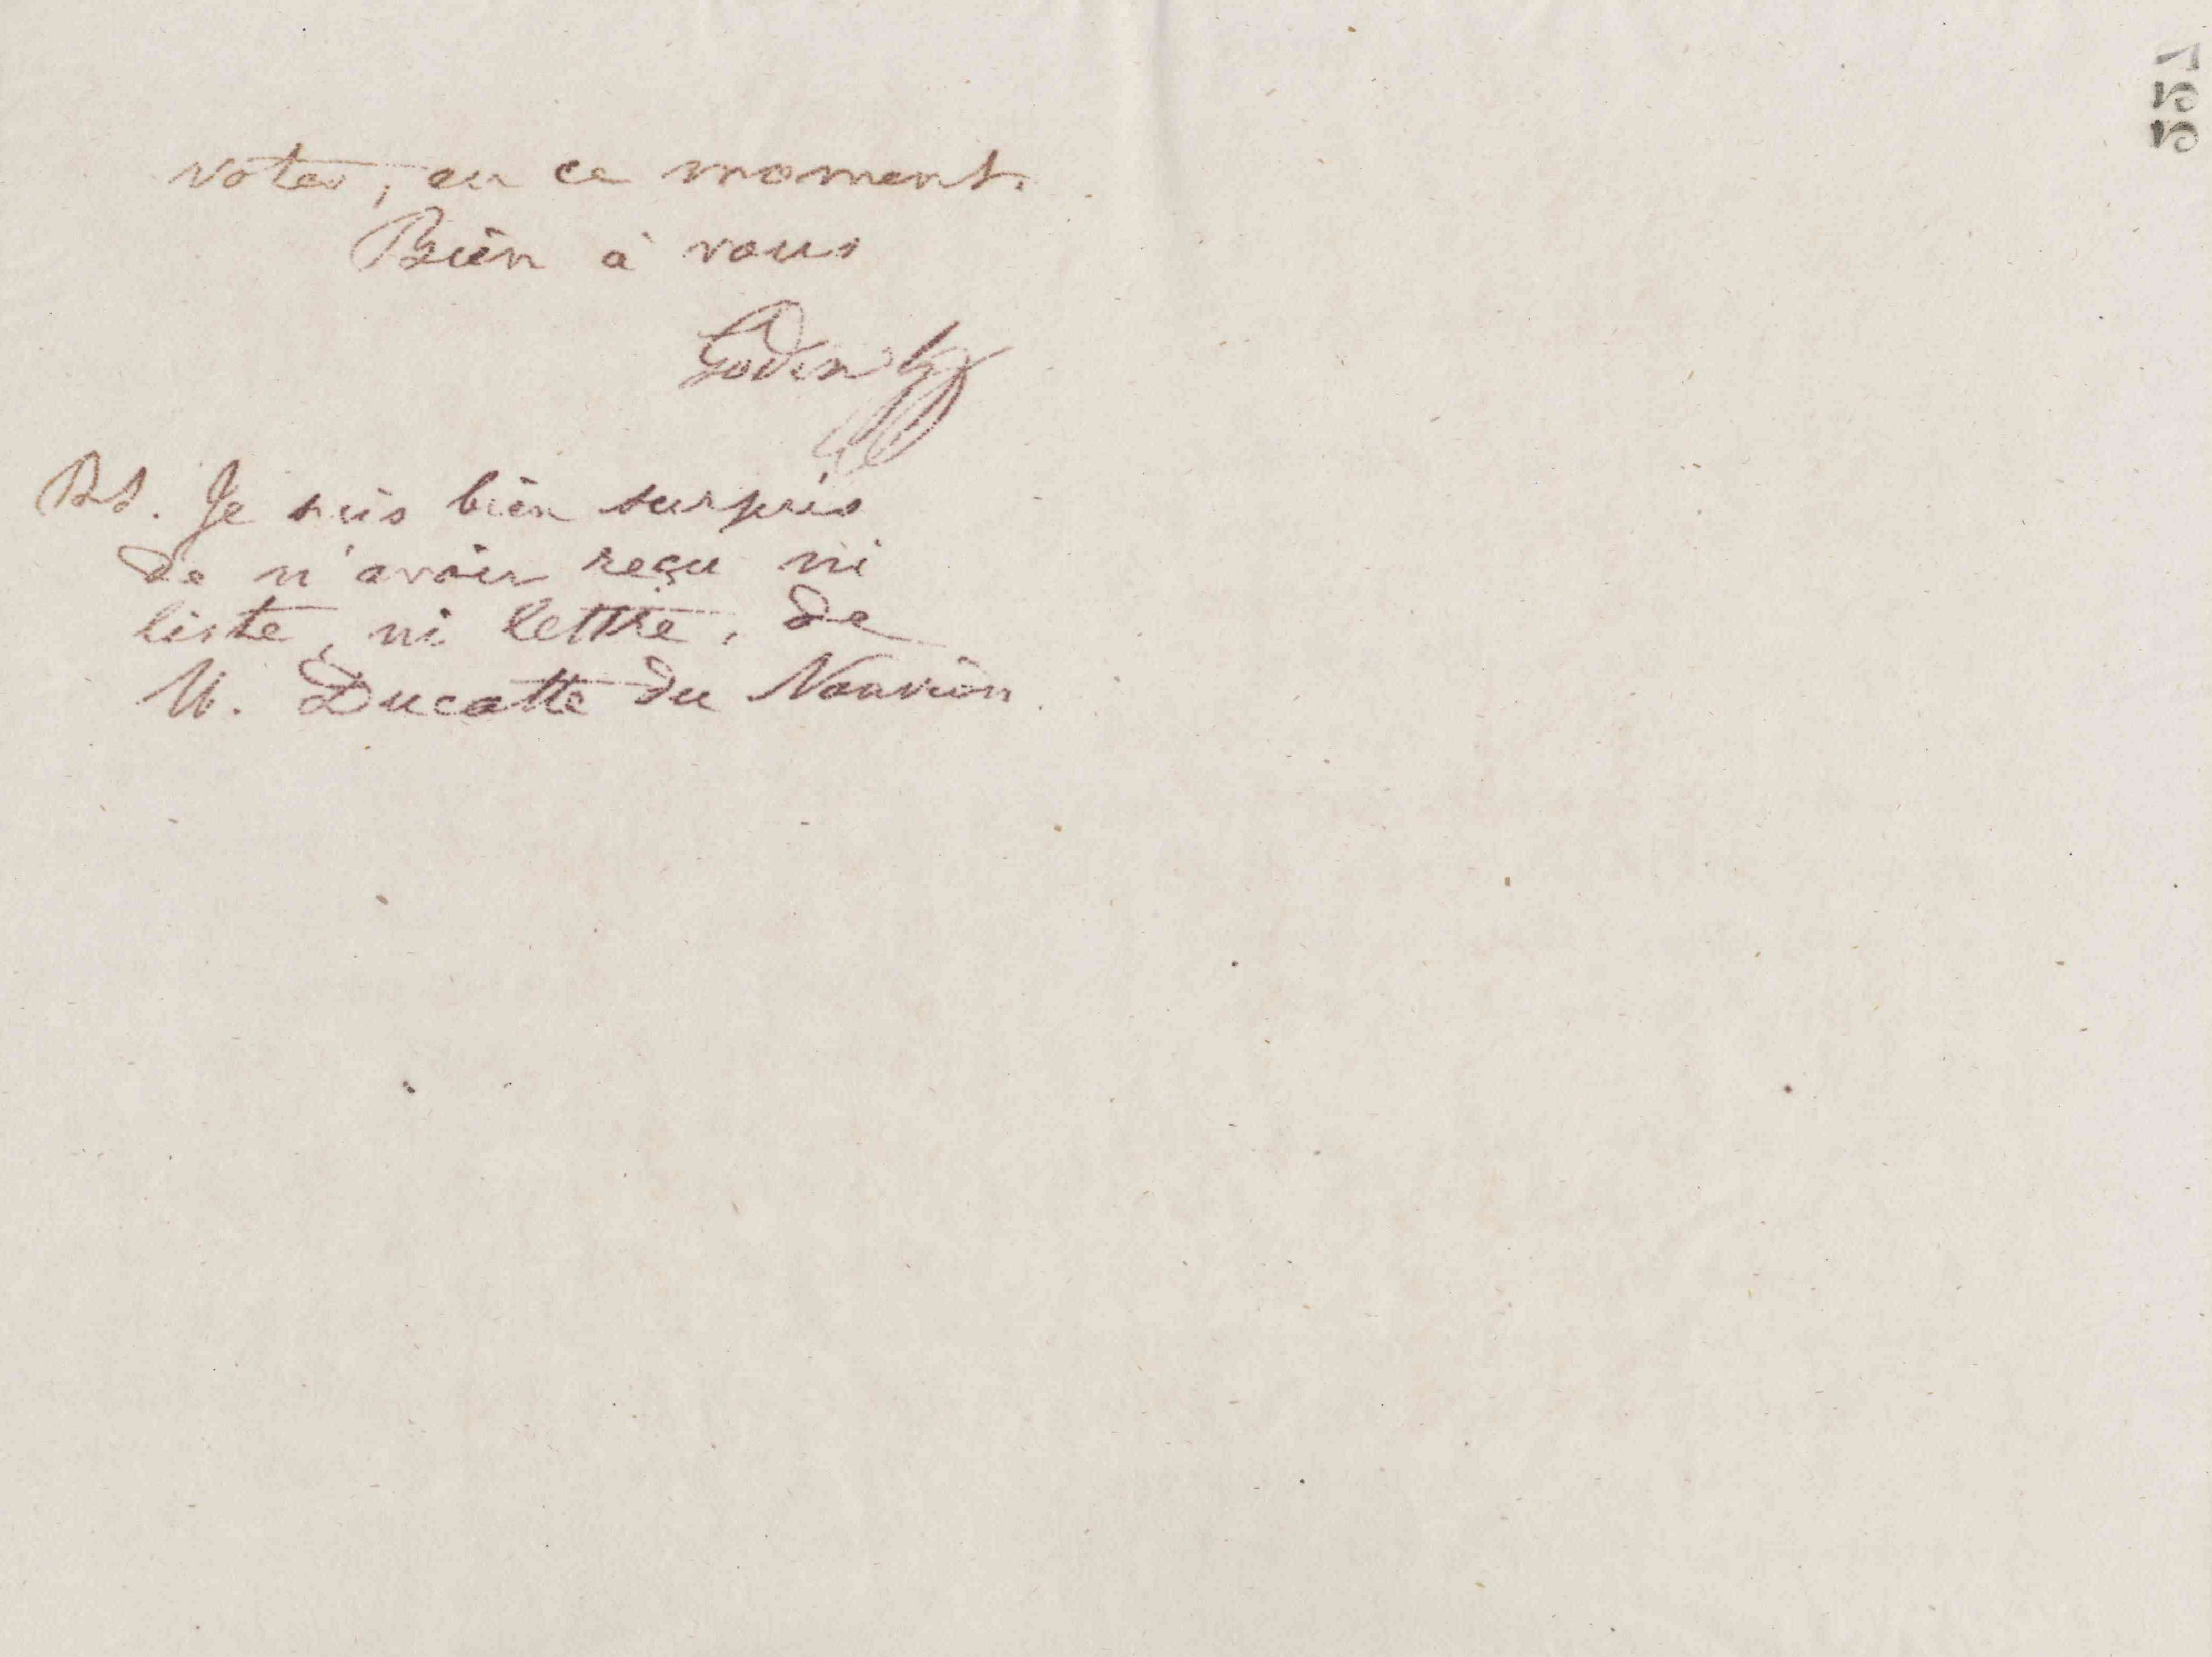 voter, en ce moment.
Bien à vous
Godin
PS. Je suis bien surpris
de n'avoir reçu ni
liste, ni lettre, de
M. Ducatte du Nouvion.
557